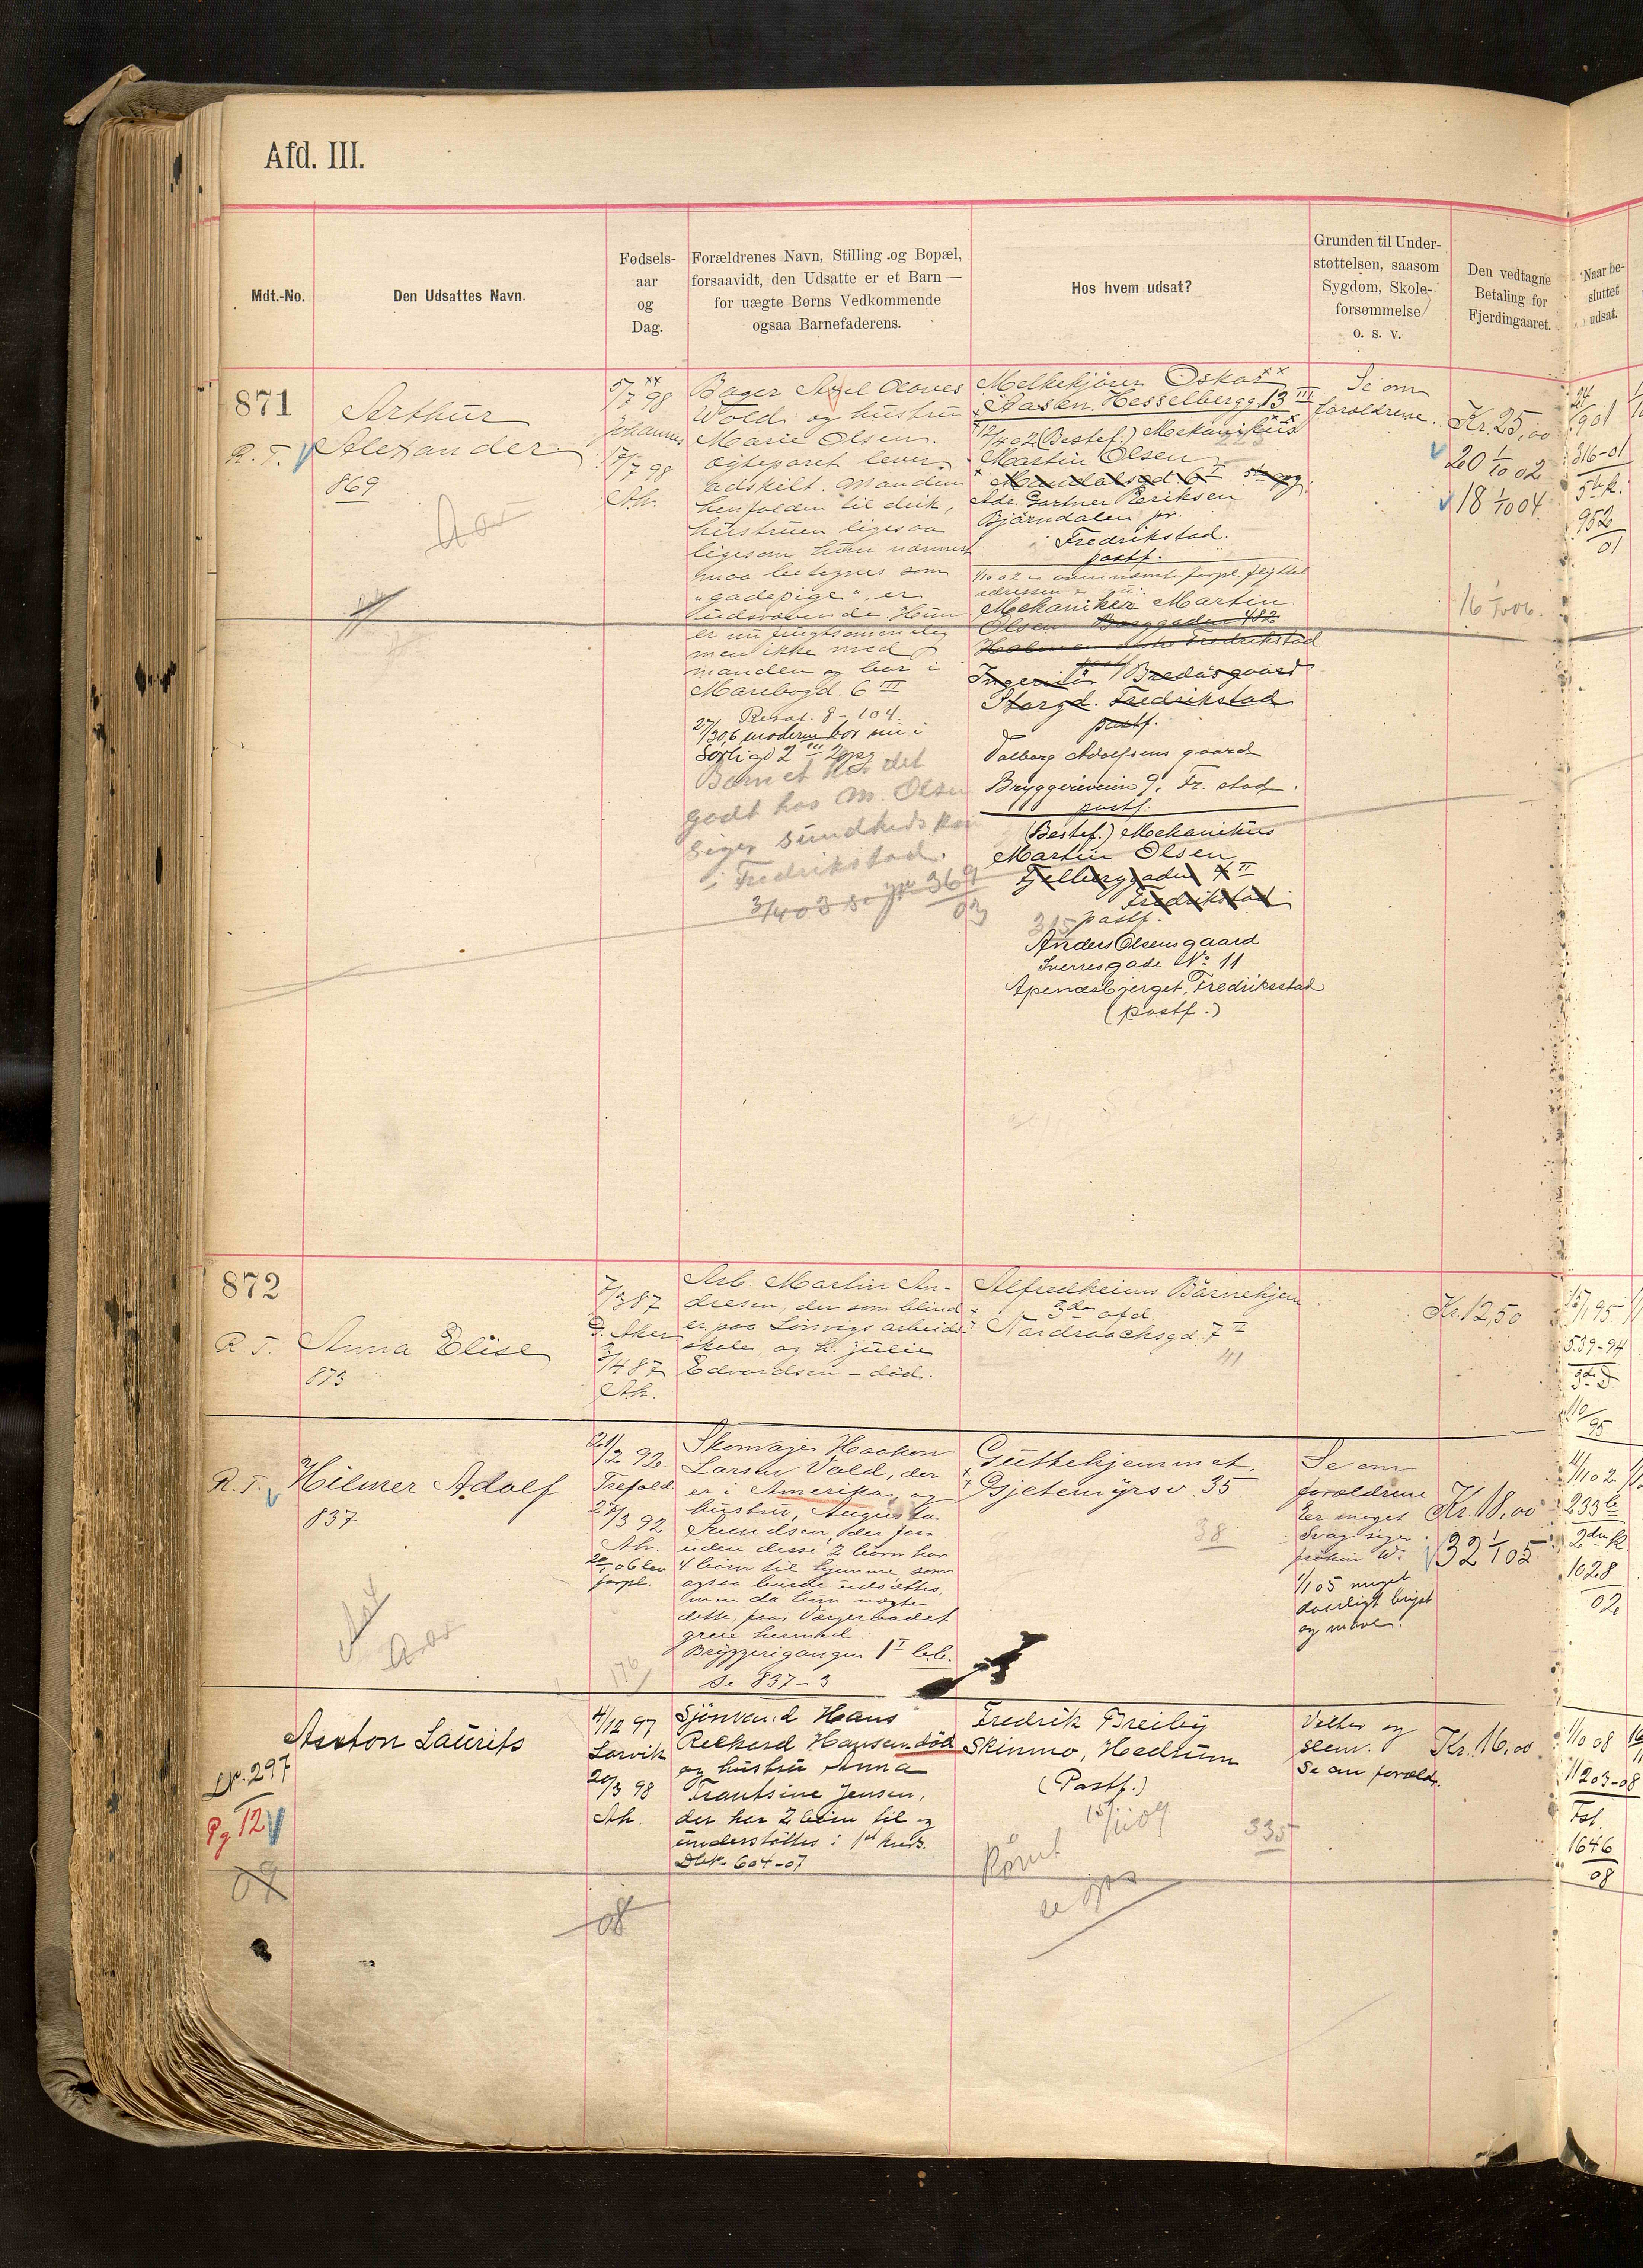 Afd. III.
Mdt.-No.
Den Udsattes Navn.
Fødsels-
aar
og
Dag.
Forældrenes Navn, Stilling og Bopæl,
forsaavidt, den Udsatte er et Barn —
for uægte Børns Vedkommende
ogsaa Barnefaderens.
Hos hvem udsat?
Grunden til Under-
støttelsen, saasom
Sygdom, Skole-
forsømmelse
o. s. v.
Den vedtagne
Betaling for
Fjerdingaaret.
Naar be-
sluttet
udsat.
871
R. F.
Arthur
Alexander
869
5/7 98
Johannes
17/7 98
Ak.
Bager Axel
Wold og hustru
Marie Olsen.
Egteparet lever
adskilt. Manden
henfalden til drik,
hustruen ligesaa
ligesom hun nærmest
maa betegnes som
"gadepige", er
Hun
er nu frugtsommelig
men ikke med
manden og bor i
Maribogd. 6 III
Resol. 8-104.
27/3 06 moderen bor nu i
Sørligd 2 III 2 opg
Barnet har det
godt hos M. Olsen
siger sundheds
i Fredrikstad.
3/4 03 se jr 369
03
Melkekjører Oskar
Aasen. Hesselbergg. 13 III
(Bestef.) Mekanikus
Martin Olsen
Adr. Gartner Eriksen
Bjørndalen pr.
Fredrikstad.
postf.
1/10 02 er ovennævnte forpl. flyttet
adressen er nu:
Mekaniker Martin
Olsen Borggaden 482
Fredrikstad
Ingeniør Bredasgaard
Storgd. Fredrikstad
postf.
Valborg Adolfsens gaard
Bryggeriveien 9. Fr. stad.
postf.
(Bestef.) Mekanikus
Martin Olsen
Fjellberggaden 4 II
Fredrikstad
postf.
315
Anders Olsens gaard
Sverresgade No 11
Apenesbjerget, Fredriksstad
(postf.)
Se om
forældrene.
Kr. 25,00
20 1/10 02
18 1/10 04
16 1/10 06.
24
/1 901
316-01
5te k.
952
01
872
R. F.
Anna Elise
873
7/3 87
Ø. Aker
3/4 87
Ak.
Arb. Martin An-
dresen, der som blind
er paa Sønvigs arbeids-
skole, og h. Julie
Edvardsen - død.
Alfredheims Barnehjem
3die afd.
Nordraachsgd. 7 II
111
Kr. 12,50
15/1 95
539-94
3die D
110/95
R. F.
Hilmer Adolf
837
21/2 92
Trefold.
27/3 92
Ak.
forpl.
Skomager Haakon
Larsen Vold, der
er i Amerika, og
hustru, Augusta
Svendsen, der for-
uden disse 2 børn har
4 børn til hjemme, som
ogsaa burde udsættes,
men da hun nægter
dette, faar Vergeraadet
greie hermed.
Bryggerigangen 1 I b.b.
Se 837-3
176
Guttehjemmet.
Gjetemyrsv. 35.
38
Se om
forældrene
Er meget
svag siger
frøken W.
1/1 05 meget
daarligt bryst
og mave.
Kr. 18,00
32 1/1 05.
4/11 02
233 b
2den k.
1028
02
Anton Laurits
Lp. 297
Pg 12
09
4/12 97
Larvik
20/3 98
Ak.
08
Sjømand Hans
Rickard Hansen død
og hustru Anna
Trantsine Jensen,
der har 2 børn til og
understøttes i 1st kreds.
Dbk. 604-07
Fredrik Breiby
Skinmo, Hedrum
(Postf.)
15/11 09
Rømt
335
se
Velter og
slem.
Se om forældr.
Kr. 16,00
1/10 08
11203-08
Fol.
1646
08